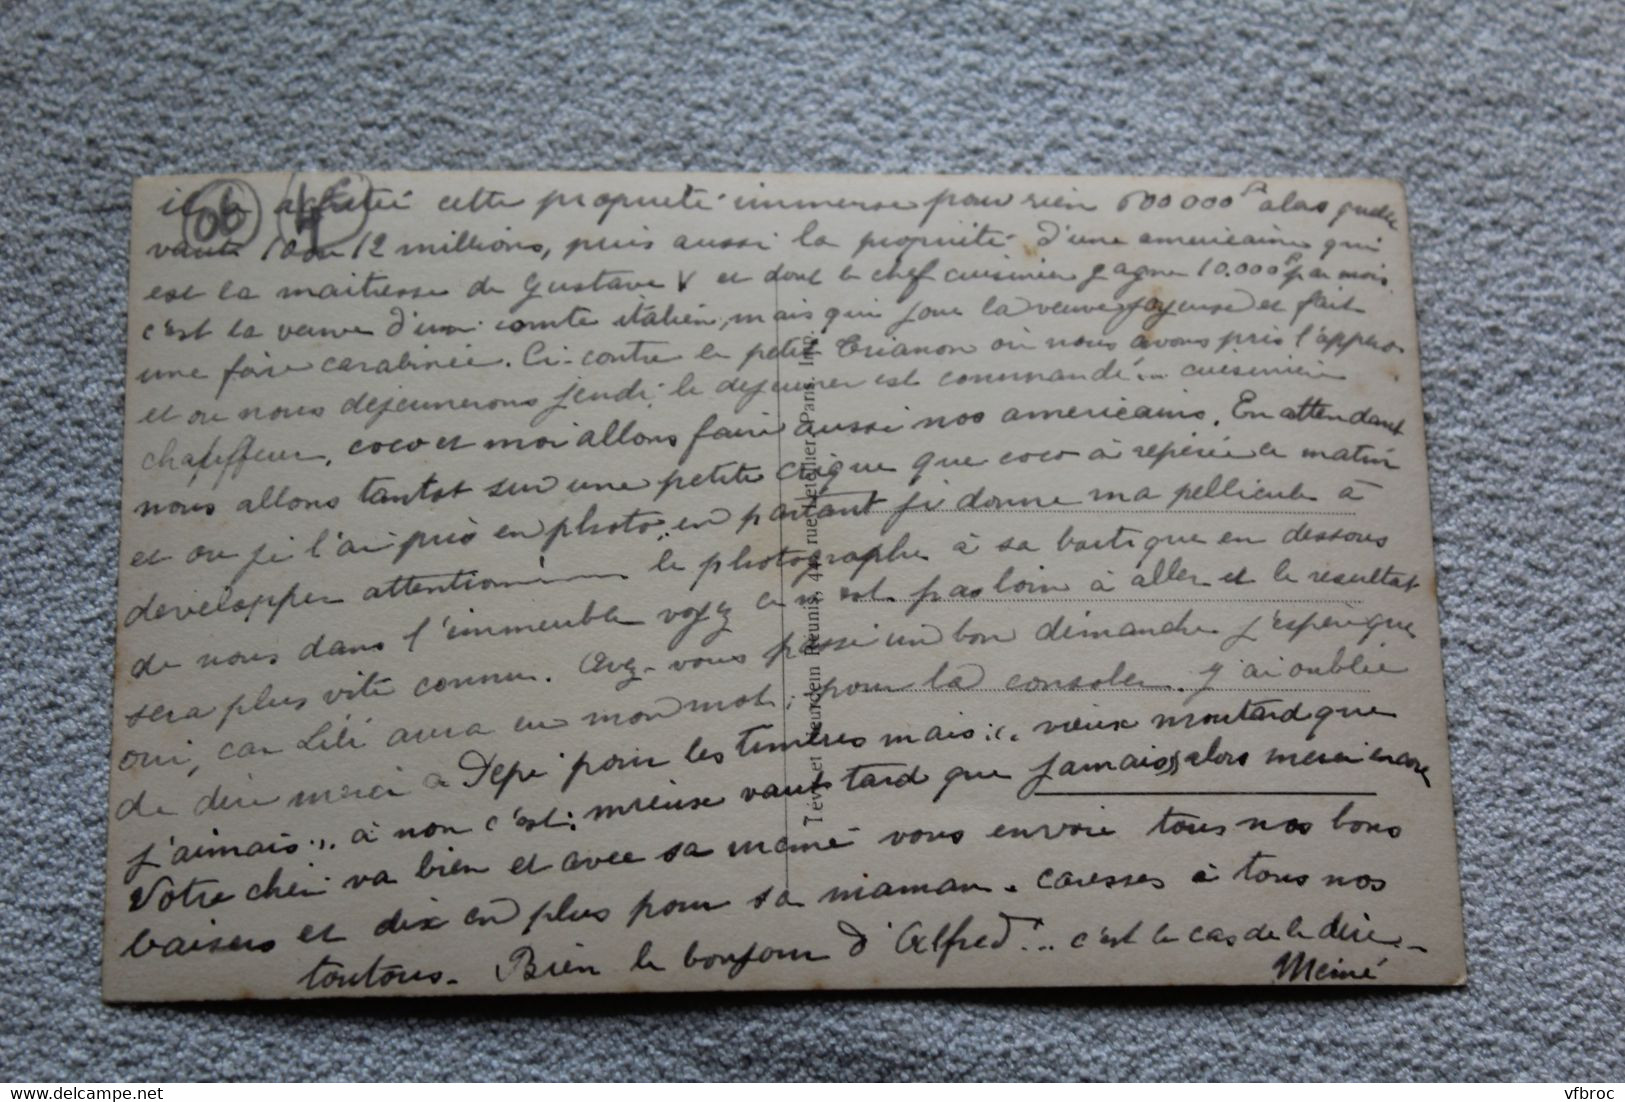 06 4F
il a acheté cette propriété immense pour rien 600 000 F alas quelle
vaute 10 ou 12 millions, puis aussi la propriété d'une americaine qui
est la maitresse de Gustave V et dont le chef cuisinier gagne 10.000 F par mois
c'est la veuve d'un comte italien, mais qui joue la veuve joyeuse et fait
une foire carabinée. Ci-contre le petit Trianon où nous avons pris l'appero
et ou nous dejeunerons jeudi, le dejeuner est commandé... cuisinier
chauffeur, coco et moi allons faire aussi nos americains. En attendant
nous allons tantot sur une petite crique que coco à repérée ce matin
et ou je l'ai pris en photo.. en partant je donne ma pellicule à
developper attention le photographe à sa boutique en dessous
de nous dans l'immeuble voyez ce n'est pas loin à aller et le resultat
sera plus vite connu. Avez-vous passé un bon dimanche j'espère que
oui, car Lili aura eu mon mot, pour la consoler. J'ai oublié
de dire merci a Dépé pour les timbres mais... vieux moutard que
j'aimais... à non c'est: mieux vaut tard que jamais, alors merci encore
Votre cheri va bien et avec sa mémé vous envoie tous nos bons
baisers et dix en plus pour sa maman. caresses à tous nos
toutous. Bien le bonjour d'Alfred!... c'est le cas de le dire
Mémé
Lévy et Neurdein Réunis, 44, rue Letellier, Paris. Imp.
delcampe.net
vfbroc